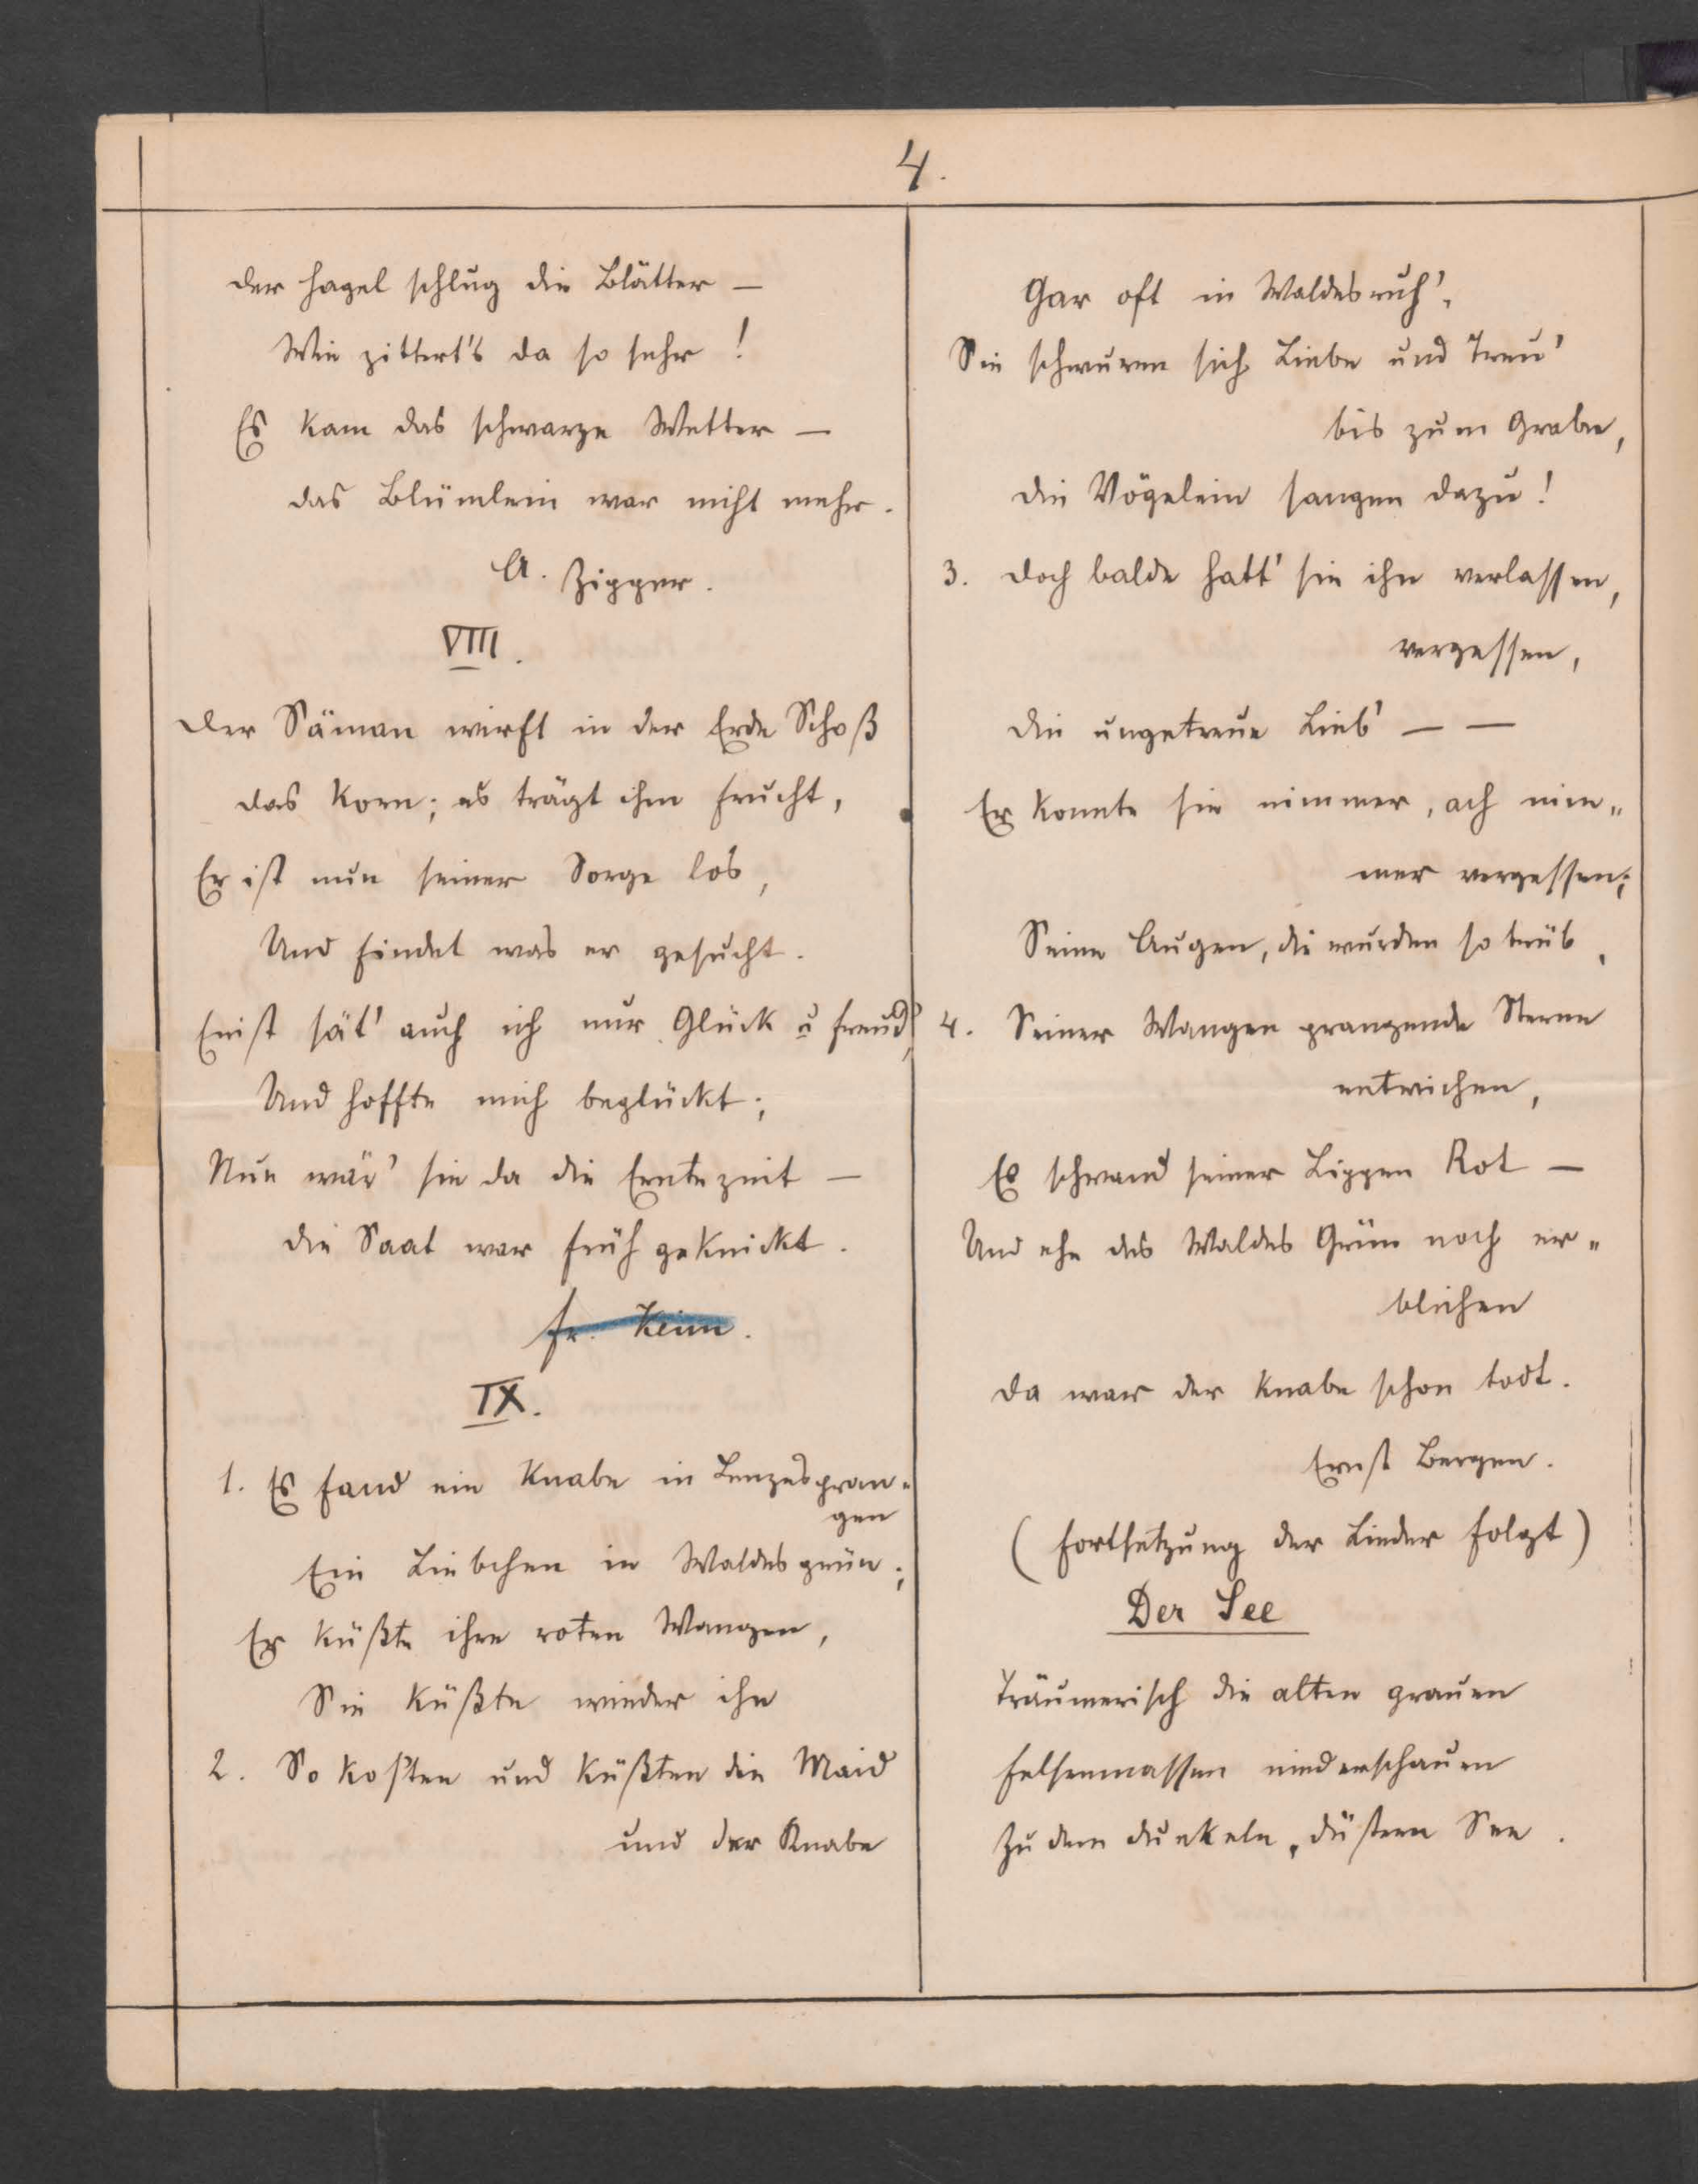 4.
Der Hagel schlug die Blätter —
Wie zittert's da so sehr!
Es kam das schwarze Wetter —
Das Blümlein war nicht mehr.
A. Zipper.
VIII.
Der Säman wirft in der Erde Schoß
Das Korn; es trägt ihm Frucht,
Er ist nun seiner Sorge los,
Und findet was er gesucht.
Einst sät' auch ich nur Glück u Freud',
Und hoffte mich beglückt;
Nun wär' sie da die Erntezeit —
Die Saat war früh geknickt.
Fr. Keim.
IX.
1. Es fand ein Knabe in Lenzespran-
gen
Ein Liebchen in Waldesgrün;
Er küßte ihre roten Wangen,
Sie küßte wieder ihn
2. So kosten und küßten die Maid
und der Knabe
Gar oft in Waldesruh',
Sie schwuren sich Liebe und Treu'
bis zum Grabe,
Die Vögelein sangen dazu!
3. Doch balde hatt' sie ihn verlassen,
vergessen,
Die ungetreue Lieb' — —
Er konnte sie nimmer, ach nim-
mer vergessen;
Seine Augen, die wurden so trüb,
4. Seiner Wangen prangende Sterne
entwichen,
Es schwand seiner Lippen Rot —
Und ehe des Waldes Grün noch er-
blichen
Da war der Knabe schon todt.
Ernst Bergen.
(Fortsetzung der Lieder folgt)
Der See
Träumerisch die alten grauen
Felsenmassen niederschauen
Zu dem dunkeln, düstern See.